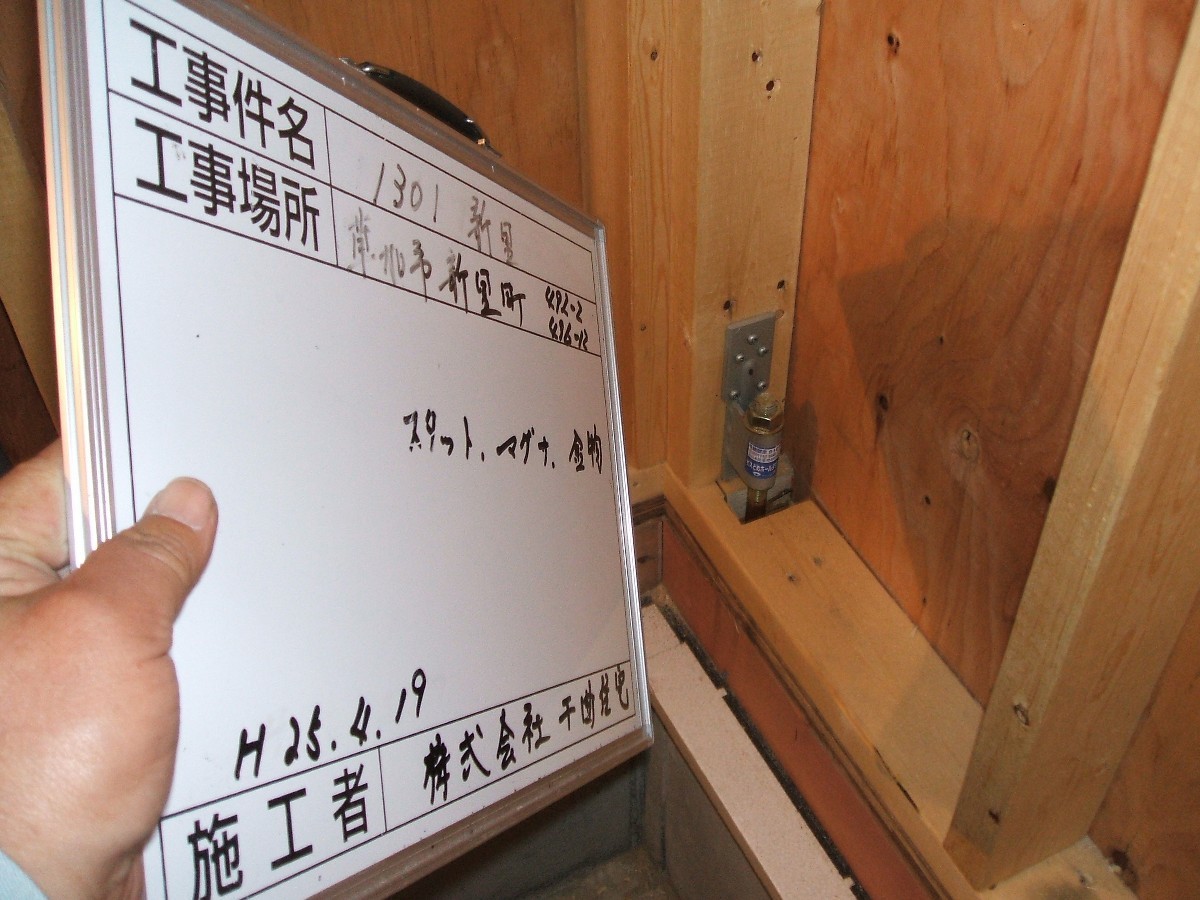 工事件名 1301 新里
工事場所 市新里町 492-2
スリット、マグナ、金物
H 25.4.19
施工者 株式会社 千曲住宅